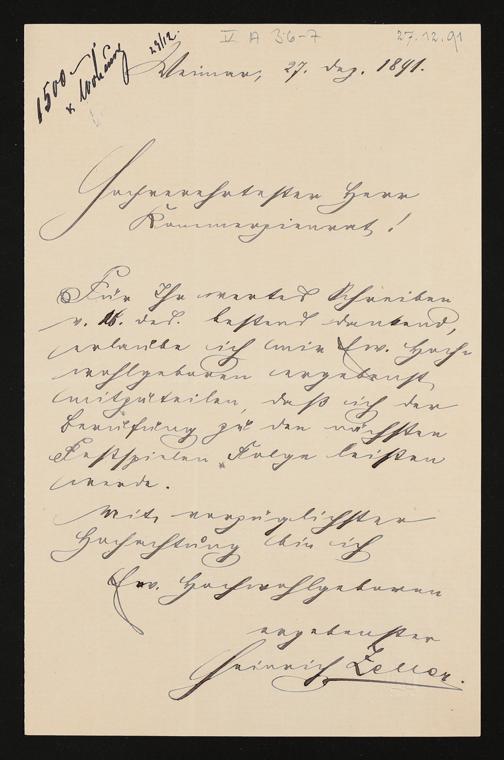 V A 36-7
27.12.91
29/12.
1500 –
x Wohnung
Weimar, 27. Dez. 1891.
Hochverehrtester Herr
Kommerzienrat!
Für Ihr wertes Schreiben
v. 16. des. bestens dankend,
erlaube ich mir Ew. Hoch-
wohlgeboren ergebenst
mitzuteilen, daß ich der
Berufung zu den nächsten
Festspielen Folge leisten
werde.
Mit vorzüglichster
Hochachtung bin ich
Ew. Hochwohlgeboren
ergebenster
Heinrich Zeller.